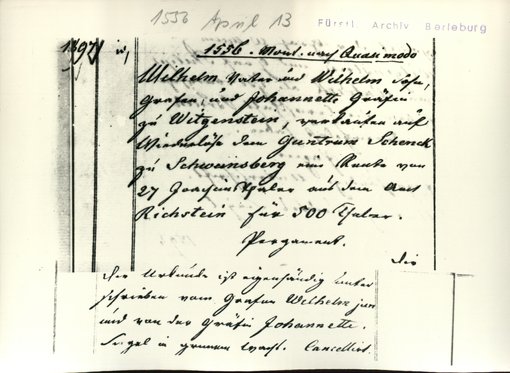 1556 April 13
Fürstl. Archiv Berleburg
1397 iv,
1556. Mont. nach Quasimodo
Wilhelm Vater und Wilhelm Sohn,
Grafen, und Johannette Gräfin
zu Witgenstein, verkaufen auf
Wiederlöse dem Guntrum Schenck
zu Schweinsberg eine Rente von
27 Joachimsthaler aus dem Amt
Richstein für 500 Thaler.
Pergament.
Die
Die Urkunde ist eigenhändig unter
schrieben vom Grafen Wilhelm jun
und von der Gräfin Johannette.
Siegel in grünem Wachs. Cancellirt.